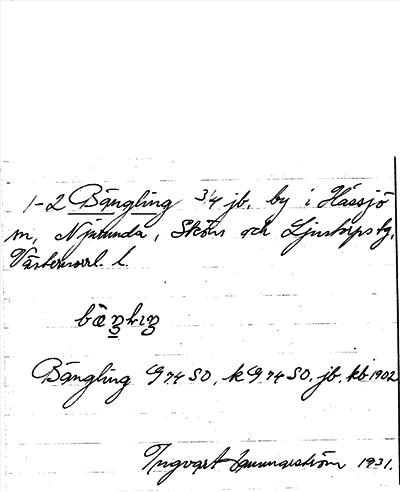 1-2 Bängling 3/4 jb. by i Hässjö
m, Njurunda, Sköns och Ljustorps tg,
Västernorrl. l.
Bängling G 74 SO, k G 74 SO, jb, kb 1902
Ingvart 1931.